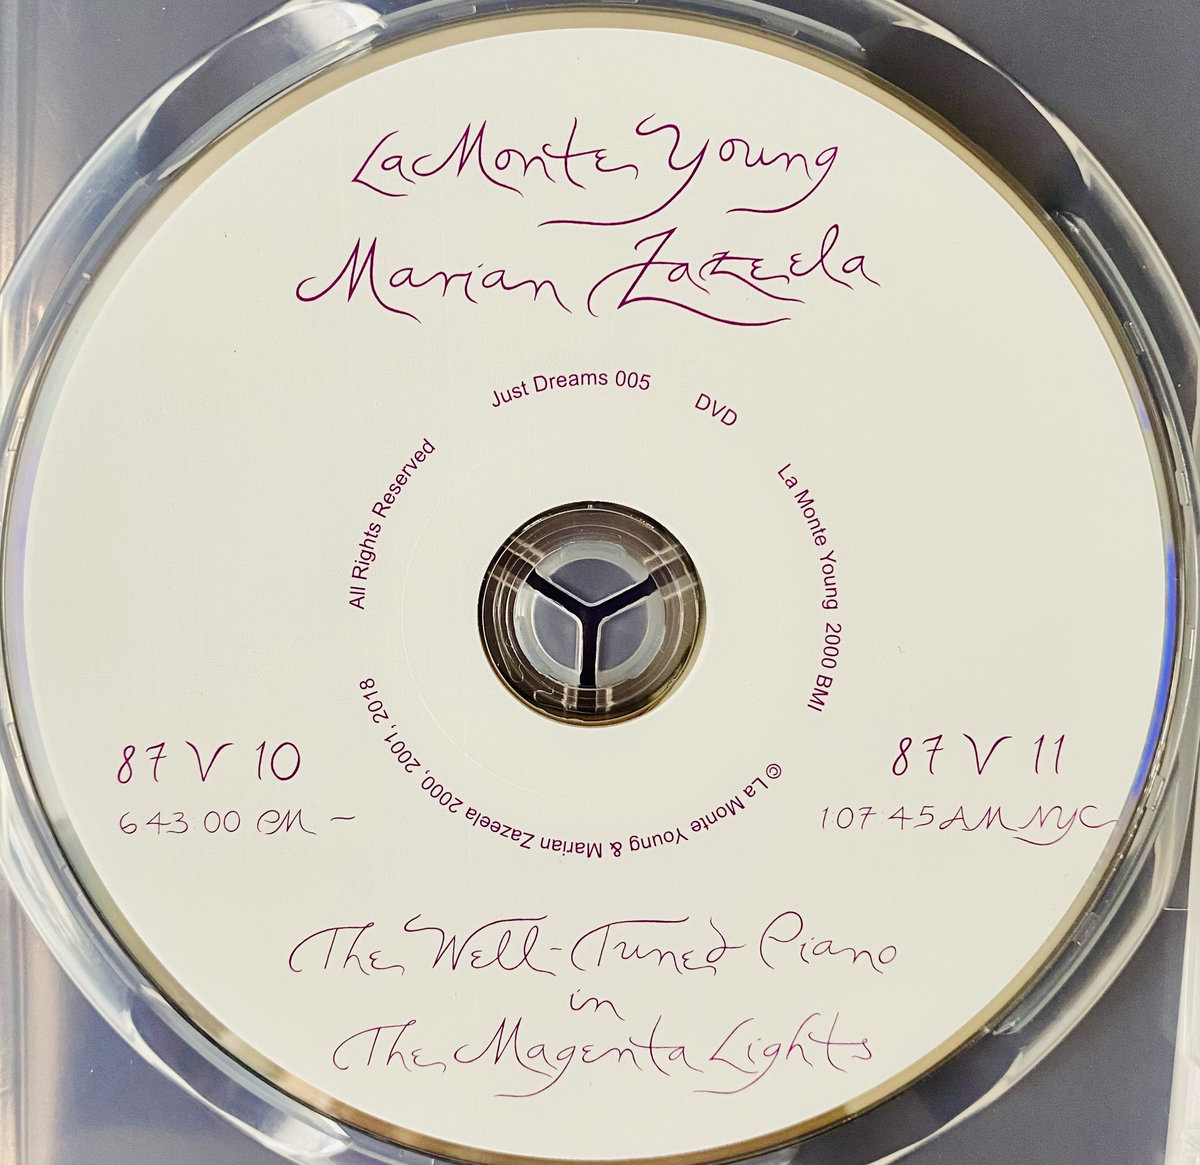 La Monte Young
Marian Zazeela
Just Dreams 005
DVD
La Monte Young 2000 BMI
© La Monte Young & Marian Zazeela 2000, 2001, 2018
All Rights Reserved
87 V 10
6 43 00 PM –
87 V 11
1 07 45 AM NYC
The Well-Tuned Piano
in
The Magenta Lights